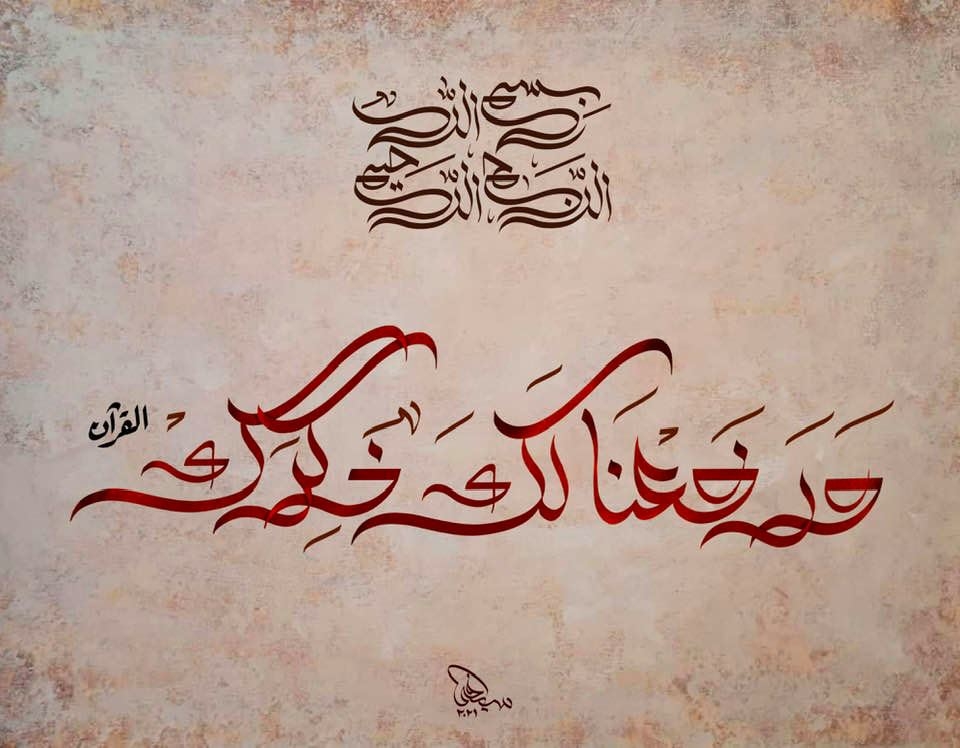 بسم الله
الرحمن الرحيم
وَرَفَعْنَا لَكَ ذِكْرَكَ
القرآن
٢٠٢١